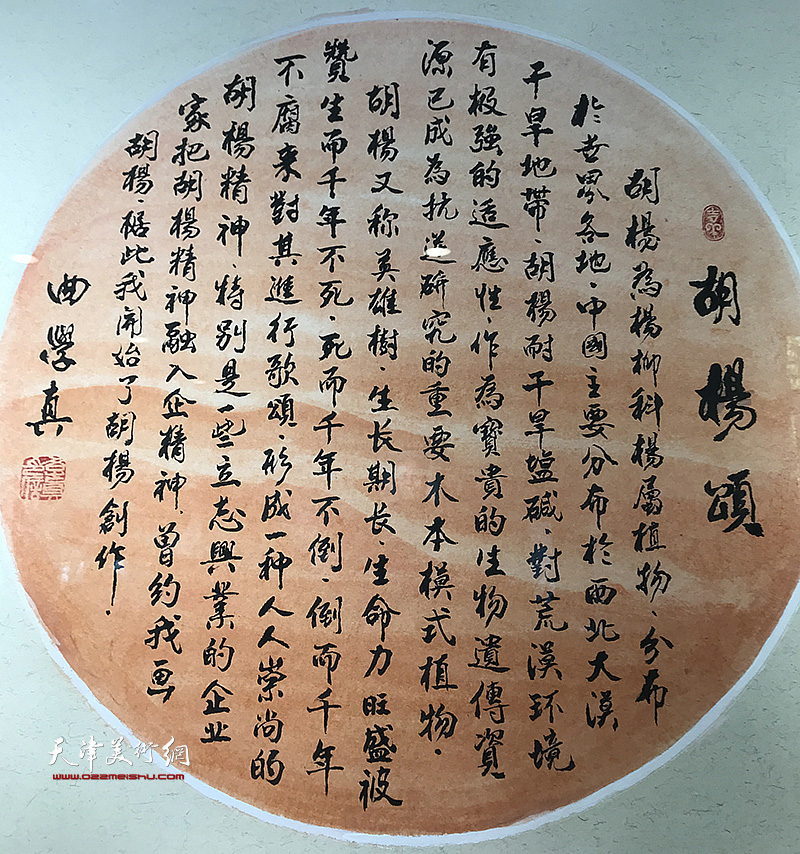 胡楊頌
胡楊為楊柳科楊屬植物、分布
於世界各地、中國主要分布於西北大漠
干旱地帶、胡楊耐干旱塩碱、對荒漠环境
有极强的适應性、作為寳貴的生物遺傳資
源已成為抗逆研究的重要木本模式植物.
胡楊又称英雄樹、生長期長、生命力旺盛被
贊生而千年不死、死而千年不倒、倒而千年
不腐来對其進行歌頌、形成一种人人崇尚的
胡楊精神、特别是一些立志興業的企业
家把胡楊精神融入企精神、曾约我画
胡楊、據此我開始了胡楊創作.
曲學真
天津美術網
www.022meishu.com